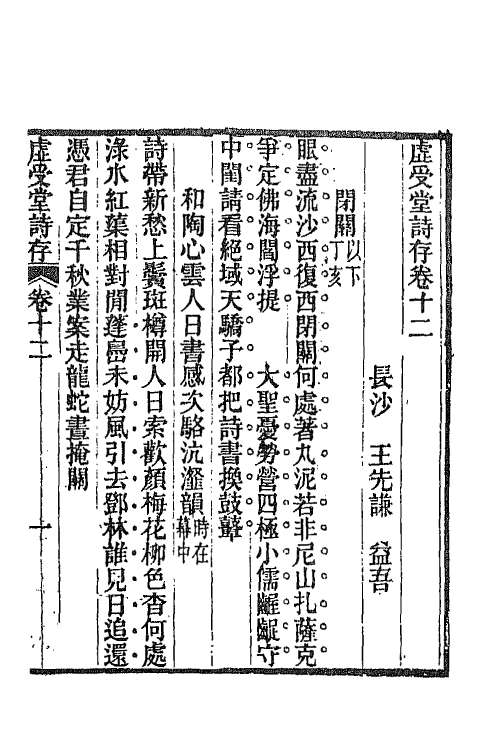 虛受堂詩存卷十二
長沙　王先謙　益吾
閉關以下丁亥
眼盡流沙西復西閉關何處著丸泥若非尼山扎薩克
爭定佛海閻浮提　大聖憂勞營四極小儒齷齪守
中閨請看絕域天驕子都把詩書換鼓鼙
和陶心雲人日書感次駱沆瀣韻時在幕中
詩帶新愁上鬢斑樽開人日索歡顏梅花柳色杳何處
淥水紅葉相對閒蓬島未妨風引去鄧林誰見日追還
憑君自定千秋業案走龍蛇晝掩關
虛受堂詩存　卷十二　一